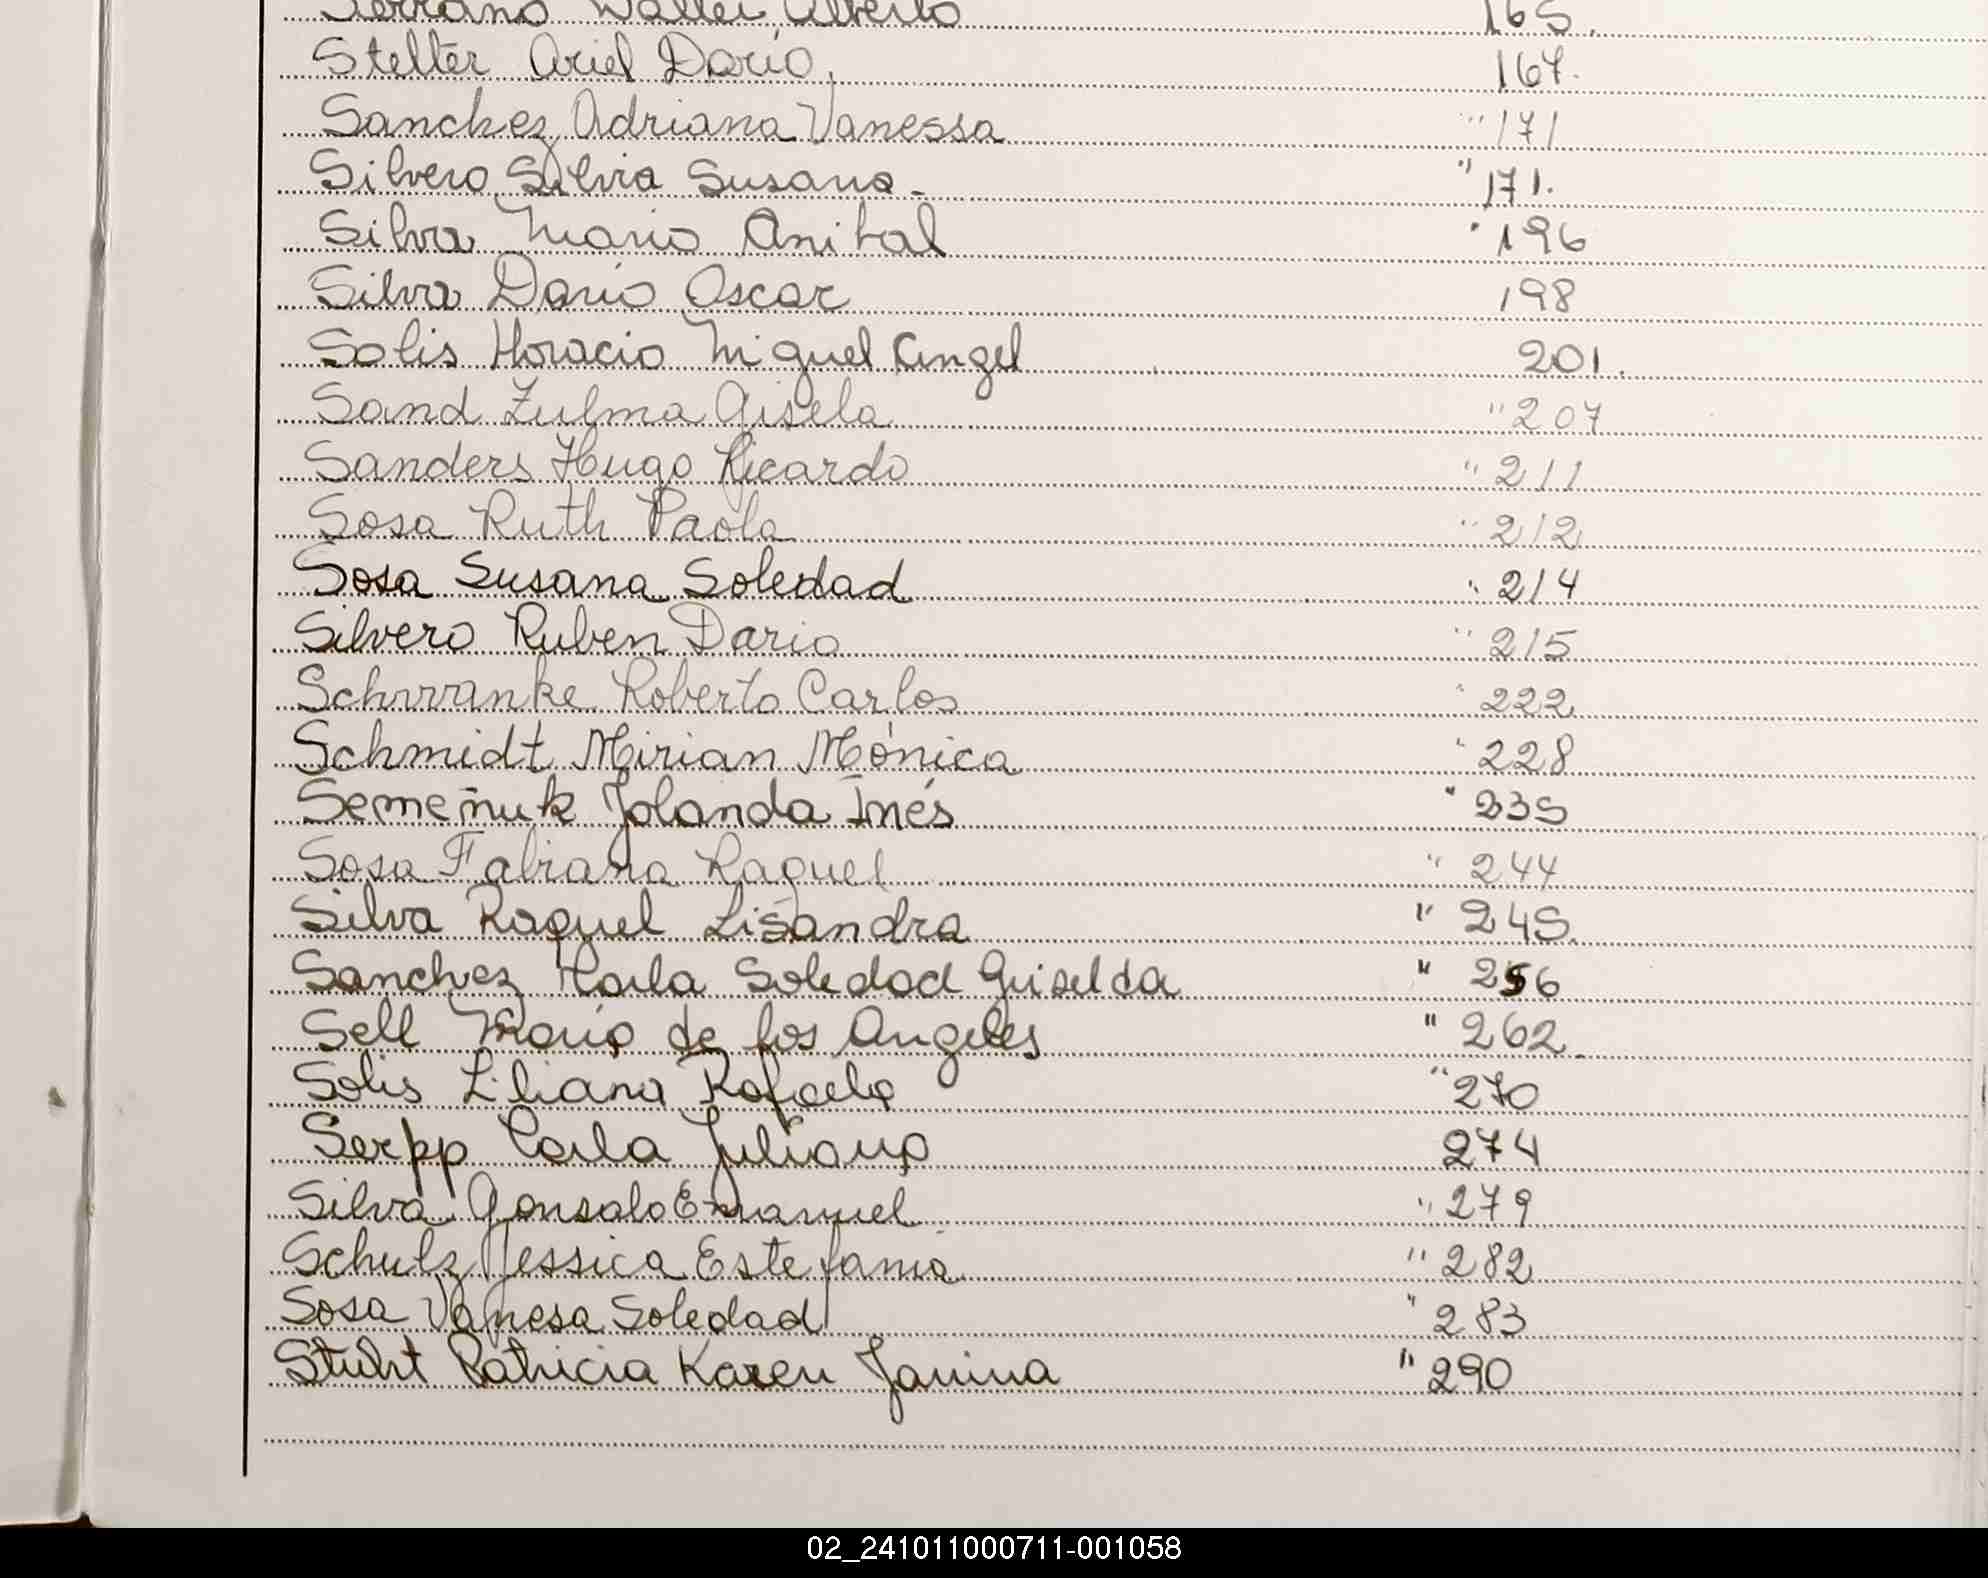 Serrano Walter Alberto 165.
Stelter Ariel Dario. 167.
Sanchez Adriana Vanessa " 171
Silvero Silvia Susana. " 171.
Silva Mario Anibal " 196
Silva Dario Oscar 198
Solis Horacio Miguel Angel 201.
Sand Zulma Gisela " 207
Sanders Hugo Ricardo " 211
Sosa Ruth Paola " 212
Sosa Susana Soledad " 214
Silvero Ruben Dario " 215
Schwanke Roberto Carlos " 222
Schmidt Mirian Mónica " 228
Semeñuk Jolanda Inés " 235
Sosa Fabiana Raquel " 244
Silva Raquel Lisandra " 245.
Sanchez Karla Soledad Griselda " 256
Sell Maria de los Angeles " 262.
Solis Liliana Rafaela " 270
Serpp Carla Juliana 274
Silva Gonsalo Emanuel " 279
Schulz Jessica Estefania " 282
Sosa Vanesa Soledad " 283
Stuht Patricia Karen Janina " 290
02_241011000711-001058